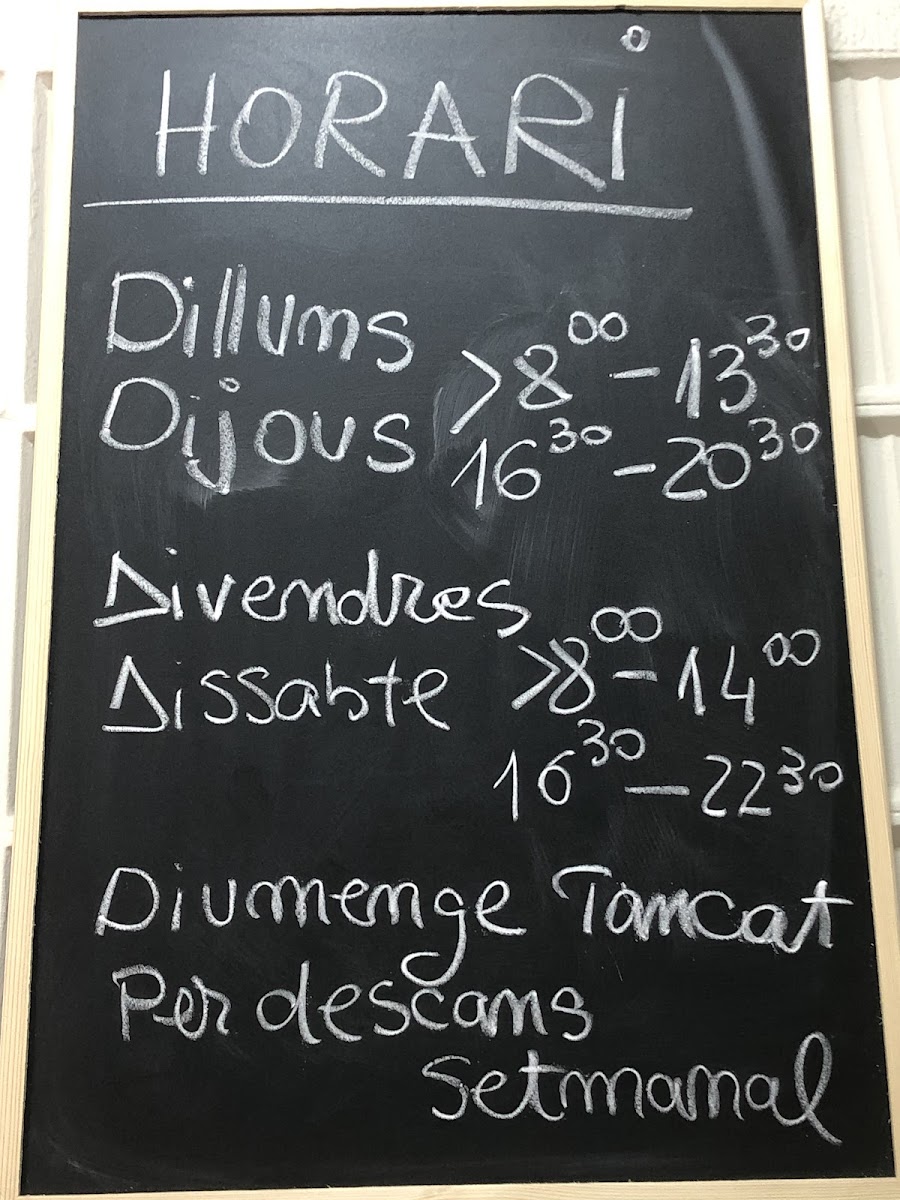 HORARI
Dillums
Dijous >8⁰⁰ - 13³⁰
16³⁰ - 20³⁰
Divendres
Dissabte >8⁰⁰ - 14⁰⁰
16³⁰ - 22³⁰
Diumenge Tancat
Per descans
Setmanal